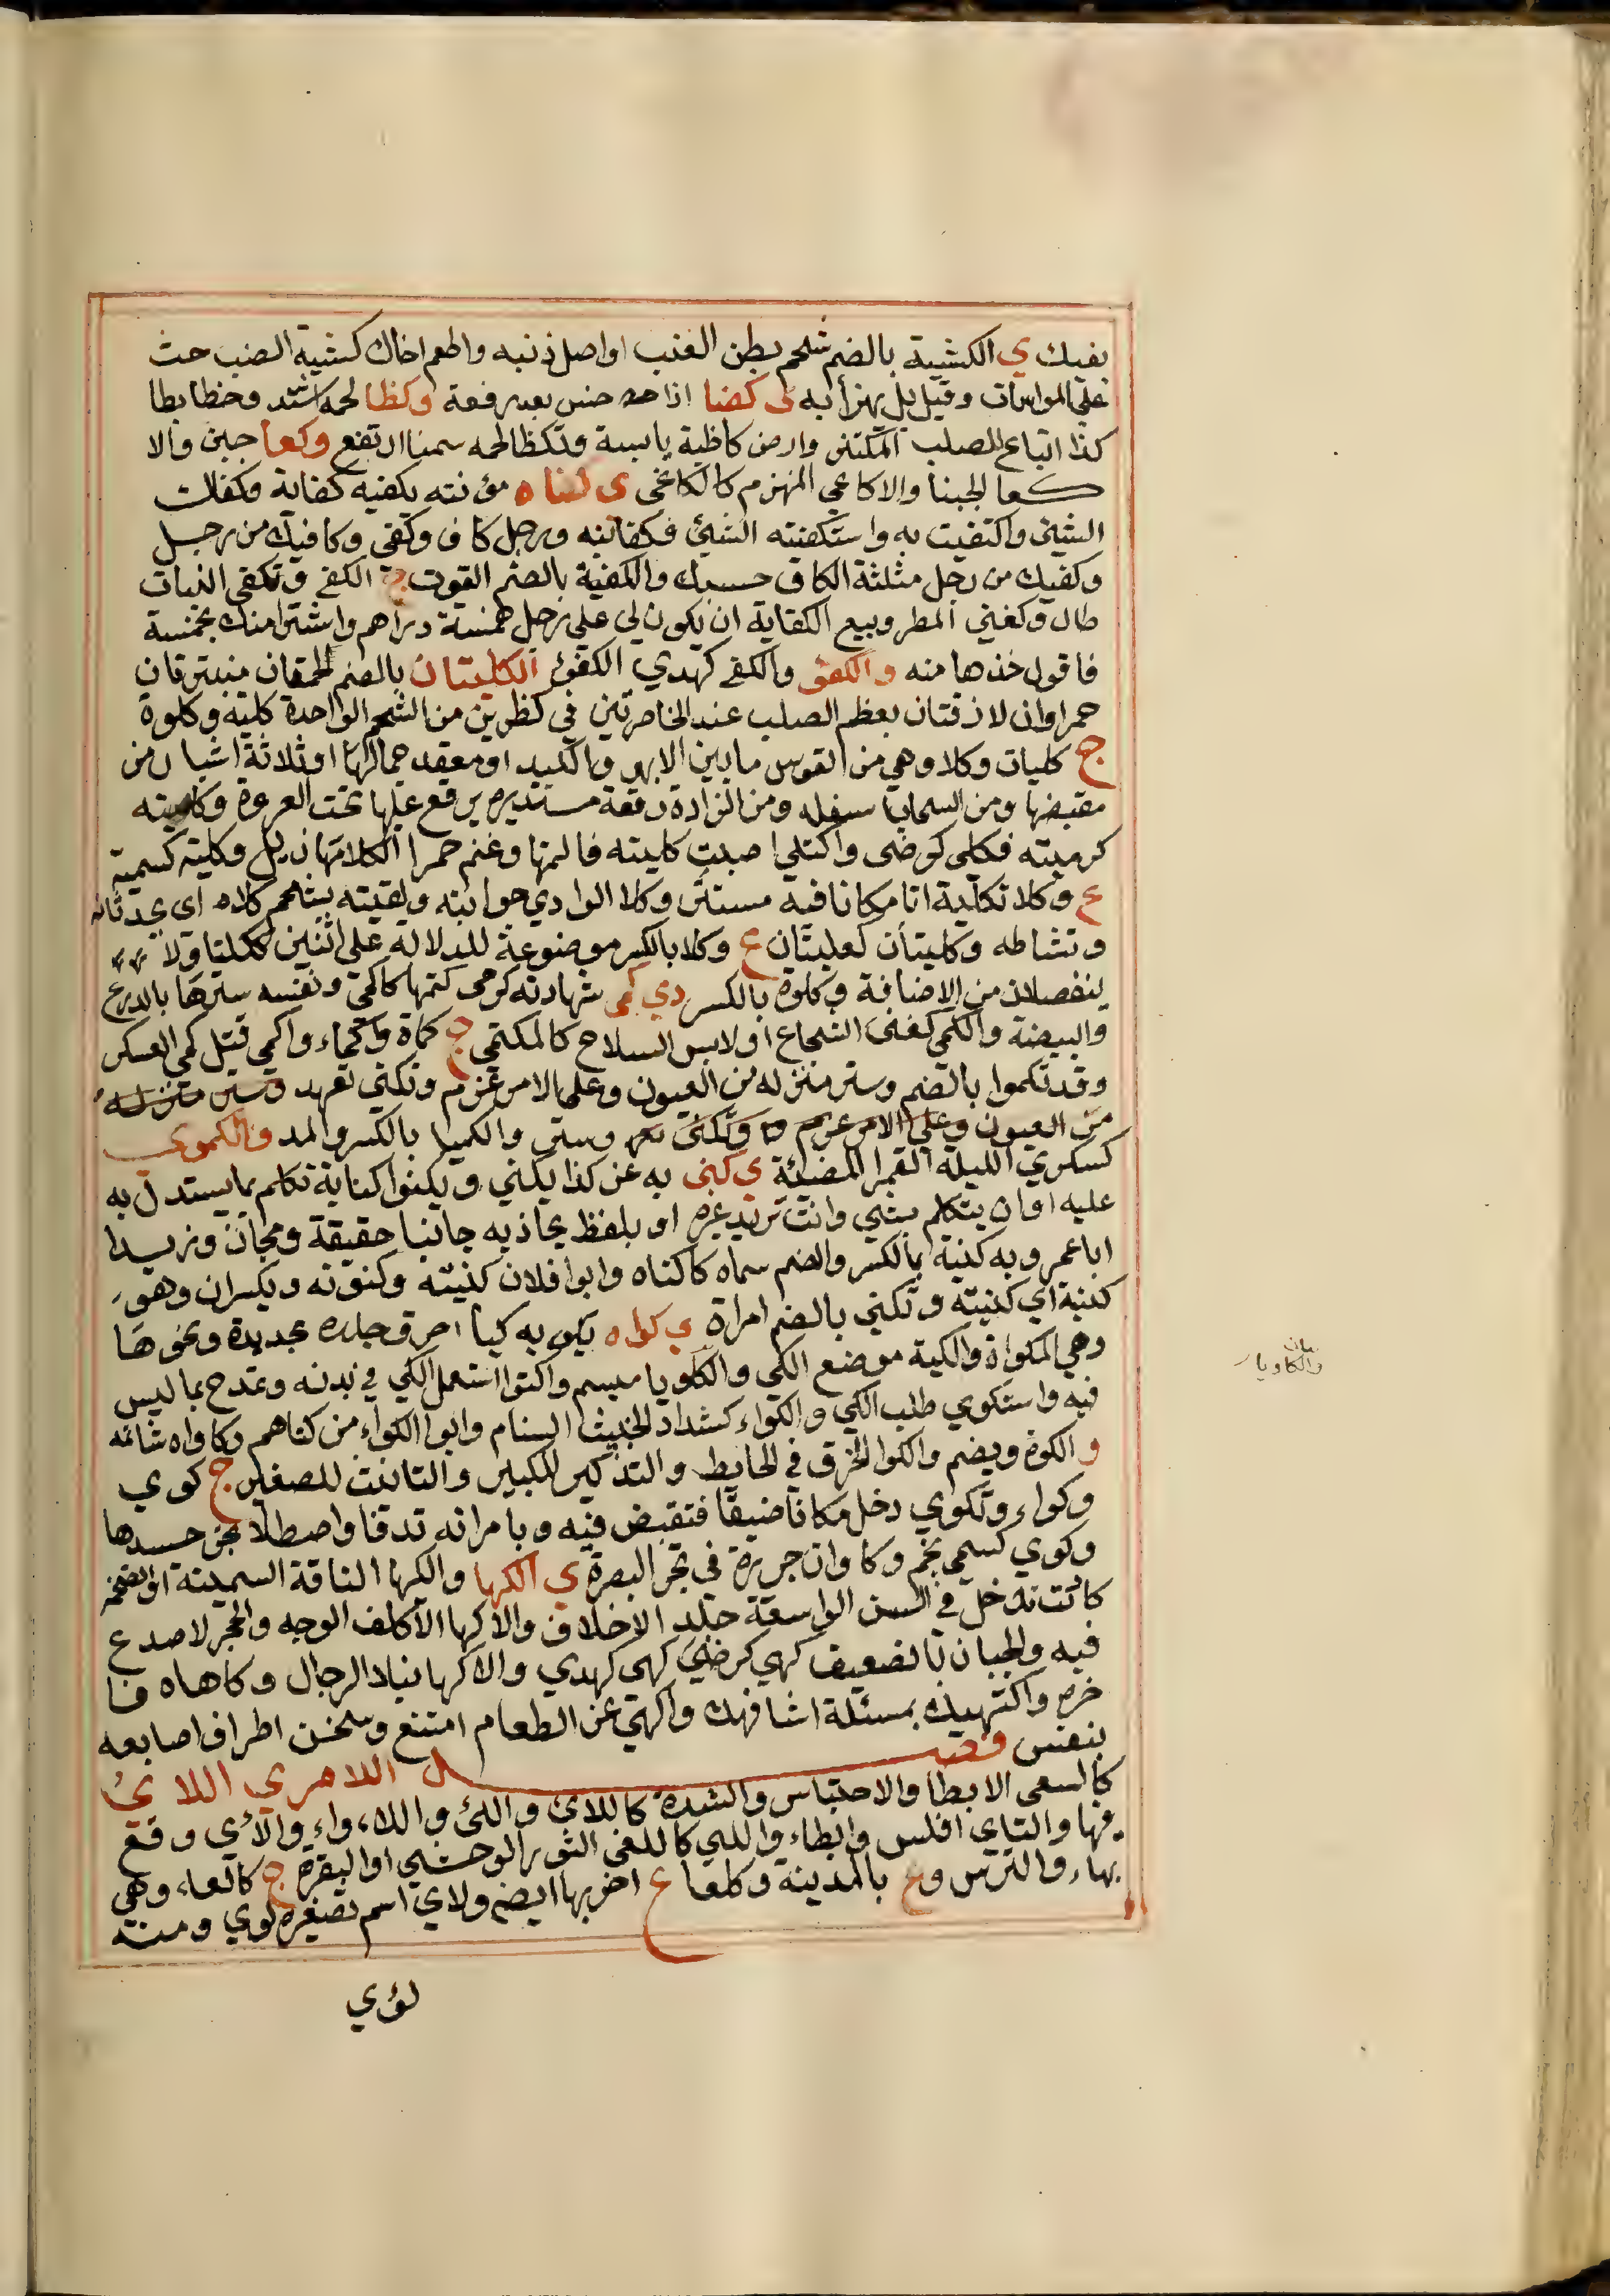 بفيك ي الكشية بالضم شحم بطن الضب او اصل ذنبه واطعم اخاك كشية الضب حث
على المواسات وقيل بل يهزأ به ى كضا اذا خنس بعد رفعة وكظا لحمه اشتد وخظا بظا
كظا اتباع الصلب المكتنز وارض كاظية يابسة وتكظا لحمه سمنا ارتفع وكعا جبن والا
كعا الجبنا والاكاعي المنهزم كالكاعى ى كفاه مؤنته يكفيه كفاية وكفاك
الشيئ واكتفيت به واستكفيته الشيئ فكفانيه ورجل كاف وكفى وكافيك من رجل
وكفيك من رجل مثلثة الكاف حسبك والكفية بالضم القوت ج الكفى وتكفى النبات
طال وكفني المطر وبيع الكفاية ان يكون لي على رجل خمسة دراهم واشترا منك بخمسة
فاقول خذها منه والكفو والكفى كهدي الكفؤ الكليتان بالضم لحمتان منبترقان
حمراوان لازقتان بعظم الصلب عند الخاصرتين في كظرين من الشحم الواحدة كلية وكلوة
ج كليات وكلا وهي من القوس ما بين الابهر والكبد او معقد حمالتها او ثلاثة اشبار من
مقبضها ومن السحاب اسفله ومن المزادة رقعة مستديره يرقع عليها تحت العروة وكليته
كرميته فكلى كرضى واكتلى اصبت كليته فالمتها وغنم حمرا الكلا مهازيل وكلية كسمية
ع وكلا تكلية اتا مكانا فيه مستتر وكلا الوادي جوانبه ولقيته بشحم كلاه اى بحدثانه
ونشاطه وكليتان كعليتان ع وكلا بالكسر موضوعة للدلالة على اثنين ككلتا ولا
ينفصلان من الاضافة وكلوة بالكسر دي كمى شهادته كرمى كتمها كاكمى ونفسه سترها بالدرع
والبيضة والكمي كغنى الشجاع او لابس السلاح كالمكتمي ج كماة واكماء واكمي قتل كمي العسكر
وقد تكموا بالضم وستر منزله من العيون وعلى الامر عزم وتكمى تعهد وستر منزله
من العيون وعلى الامر عزم وتكمى تعهد وستر والكميا بالكسر والمد والكموى
كسكري الليلة القمرا المضيئة ي كنى به عن كذا يكني ويكنوا كناية تكلم بما يستدل به
عليه او ان يتكلم بشي وانت تريد غيره او بلفظ يجاذبه جانبا حقيقة ومجاز وزيدا
ابا عمرو به كنية بالكسر والضم سماه كاكناه وابوا فلان كنيته وكنوته ويكسران وهو
كنية اي كنيته وتكني بالضم امراة ي كواه يكويه كيا احرق جلده بحديدة ونحوها
وهي المكواة والكية موضع الكي والكاويا ميسم واكتوا استعمل الكي في بدنه وتمدح بما ليس
فيه واستكوي طلب الكي والكواء كشداد الخبيث السنام وابوا الكواء من كناهم وكاواه شاتمه
و الكوة ويضم والكوا الخرق في الحايط والتذكير للكبير والتانيث للصغير ج كوي
وكواء وتكوي دخل مكانا ضيقا فتقبض فيه وبامراته تدفا واصطلا بحر جسدها
وكوي كسمى نجم وكاوان جزيرة في بحر البصرة ي الكهيا والكهيا الناقة السمينة او الضخمة
كادت تدخل في السن الواسعة جلد الاخلاف والاكها الاكلف الوجه والحجر لا صدع
فيه والجبان الضعيف كهى كرضى كهى كهدي والاكها نبلاء الرجال وكاهاه فا
خره واكتهيك بمسئلة اشافهك واكهى عن الطعام امتنع وسخن اطراف اصابعه
بنفس فصــــل اللام ي اللاي
كالسعى الابطا والاحتباس والشدة كاللاى واللئ واللاواء والأى وقع
فيها والتاى افلس وابطاء واللي كاللغى الثور الوحشي او البقرة ج كالعاء وهي
بهاء والترس وع بالمدينة وكلعا ع اخر بها ايضا ولاي اسم تصغيره لوي ومنه
لؤي
بيان
والكاويا